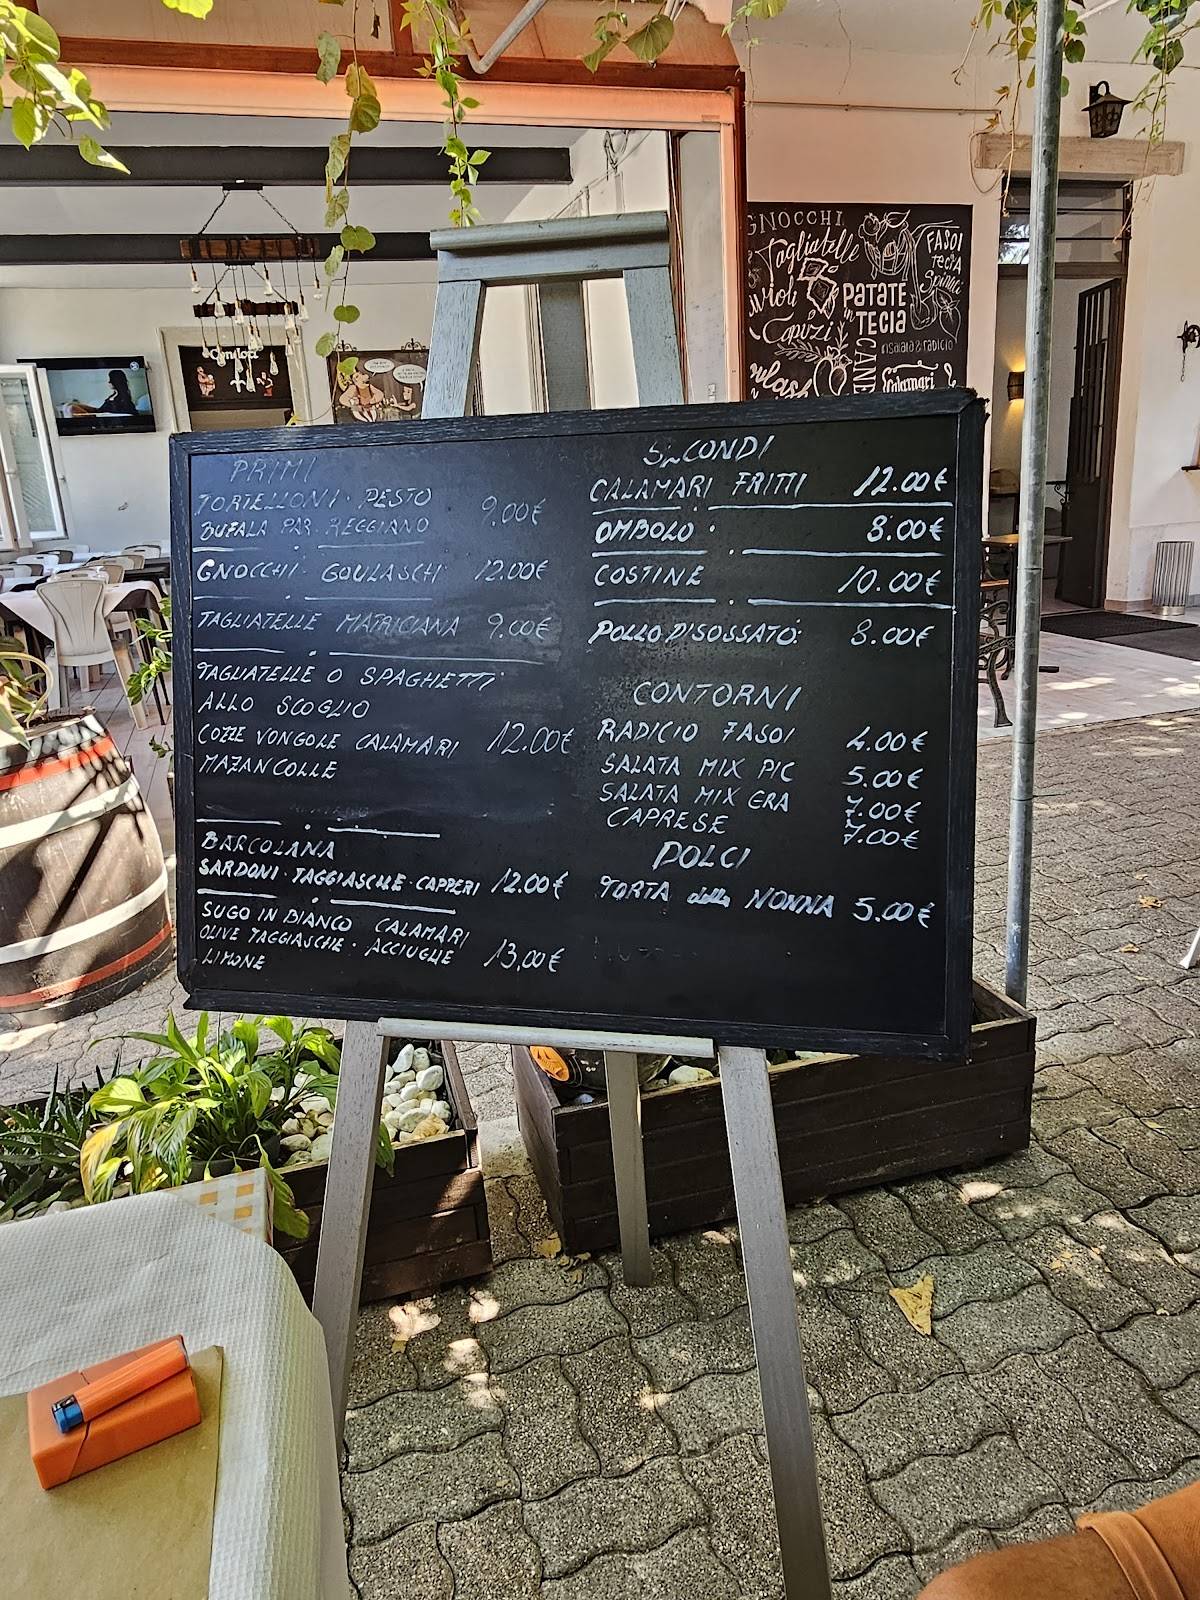 PRIMI
TORTELLONI · PESTO
BUFALA PAR. REGGIANO 9,00€
GNOCCHI · GOULASCH 12.00€
TAGLIATELLE MATRICIANA 9.00€
TAGLIATELLE O SPAGHETTI
ALLO SCOGLIO
COZZE VONGOLE CALAMARI 12.00€
MAZANCOLLE
BARCOLANA
SARDONI · TAGGIASCHE · CAPPERI 12.00€
SUGO IN BIANCO CALAMARI
OLIVE TAGGIASCHE · ACCIUGHE 13,00€
LIMONE
SECONDI
CALAMARI FRITTI 12.00€
OMBOLO 8.00€
COSTINE 10.00€
POLLO DISOSSATO: 8.00€
CONTORNI
RADICIO FASOI 4.00€
SALATA MIX PIC 5.00€
SALATA MIX GRA 7.00€
CAPRESE 7.00€
DOLCI
TORTA della NONNA 5.00€
GNOCCHI
Tagliatelle
Capuzi
PATATE
in
TECIA
FASOI
TECIA
Spinaci
insalata & radicio
Calamari